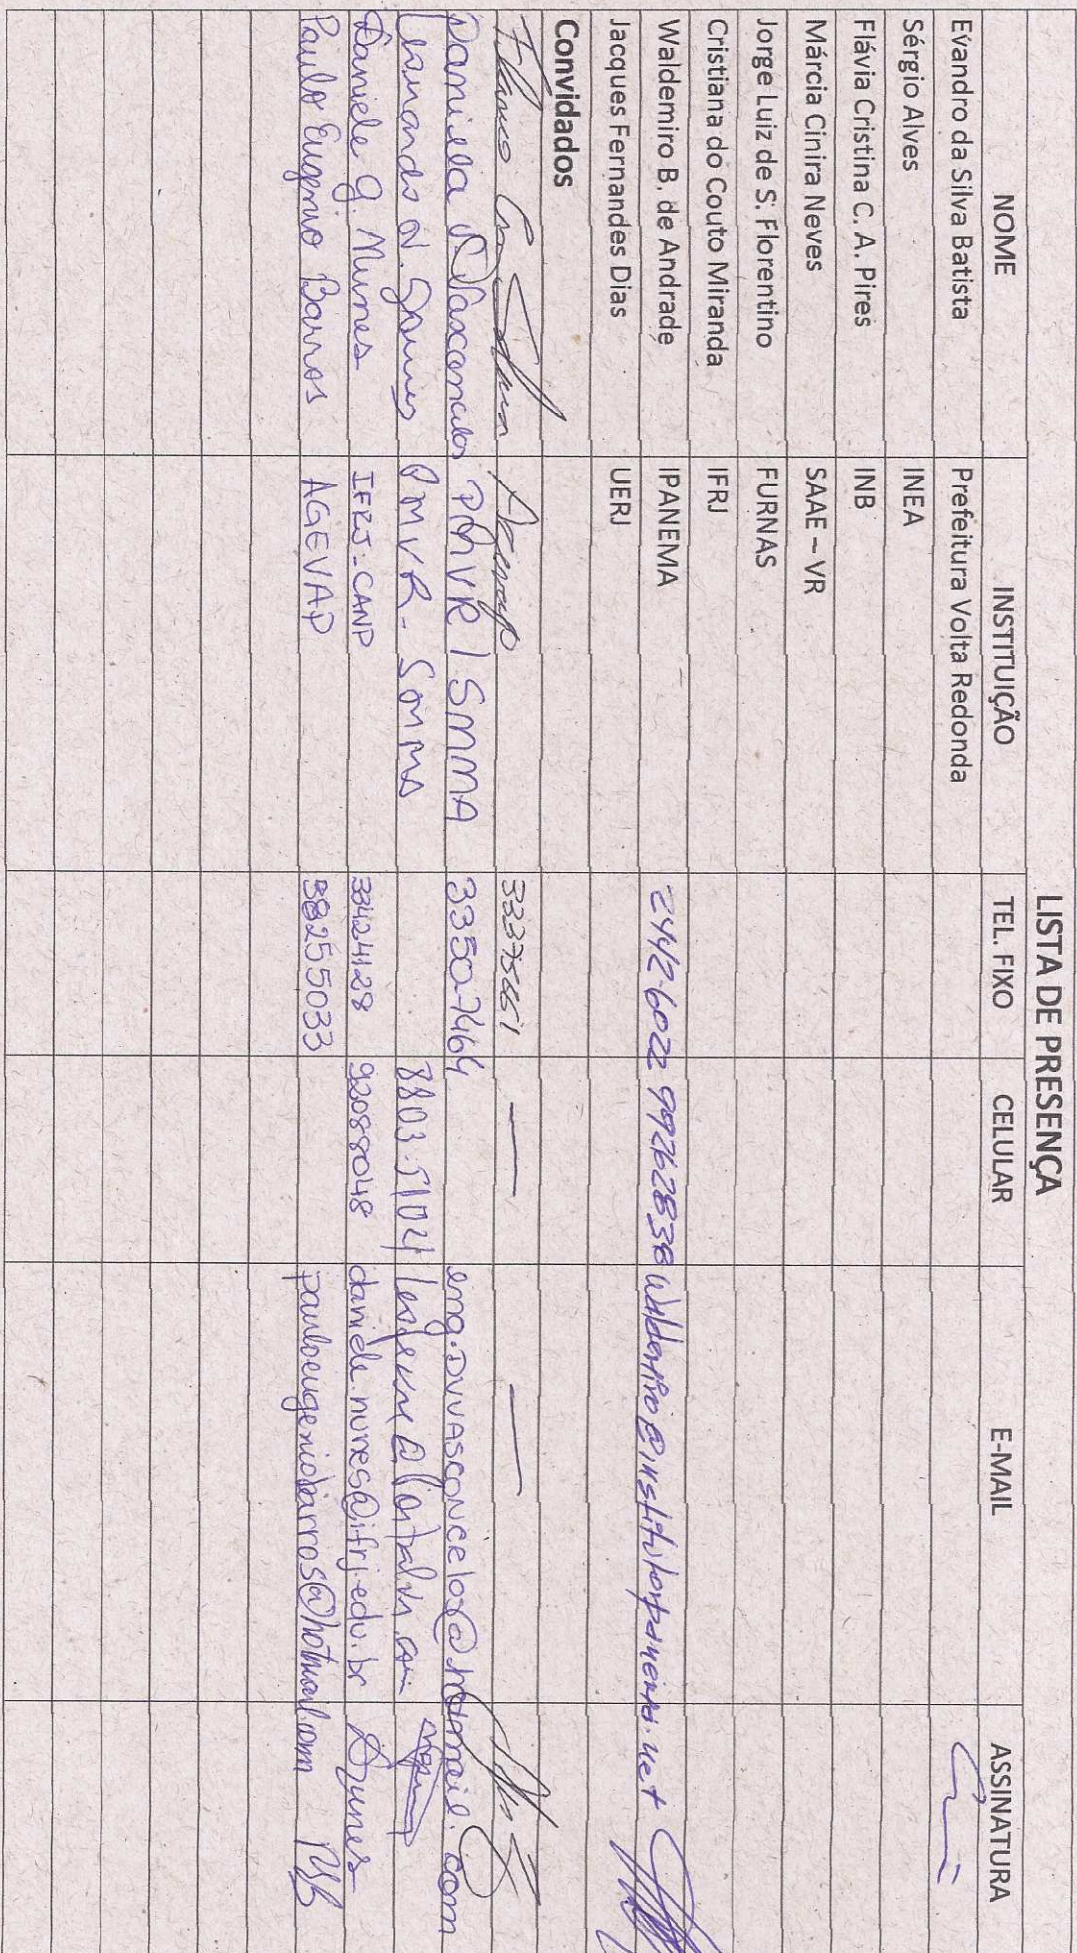 LISTA DE PRESENÇA
NOME INSTITUIÇÃO TEL. FIXO CELULAR E-MAIL ASSINATURA
Evandro da Silva Batista Prefeitura Volta Redonda
Sérgio Alves INEA
Flávia Cristina C. A. Pires INB
Márcia Cinira Neves SAAE – VR
Jorge Luiz de S. Florentino FURNAS
Cristiana do Couto Miranda IFRJ
Waldemiro B. de Andrade IPANEMA 2442-6022 99262838
Jacques Fernandes Dias UERJ
Convidados
Daniela Vasconcelos PMVR / SMMA 3350-7464 eng.DVVASCONCELOS@hotmail.com
PMVR - SMMA 8803-5104
Daniele G. Nunes IFRJ-CANP 33424128 92088048 daniele.nunes@ifrj.edu.br
Paulo Eugenio Barros AGEVAP 38255033 pauloeugeniobarros@hotmail.com